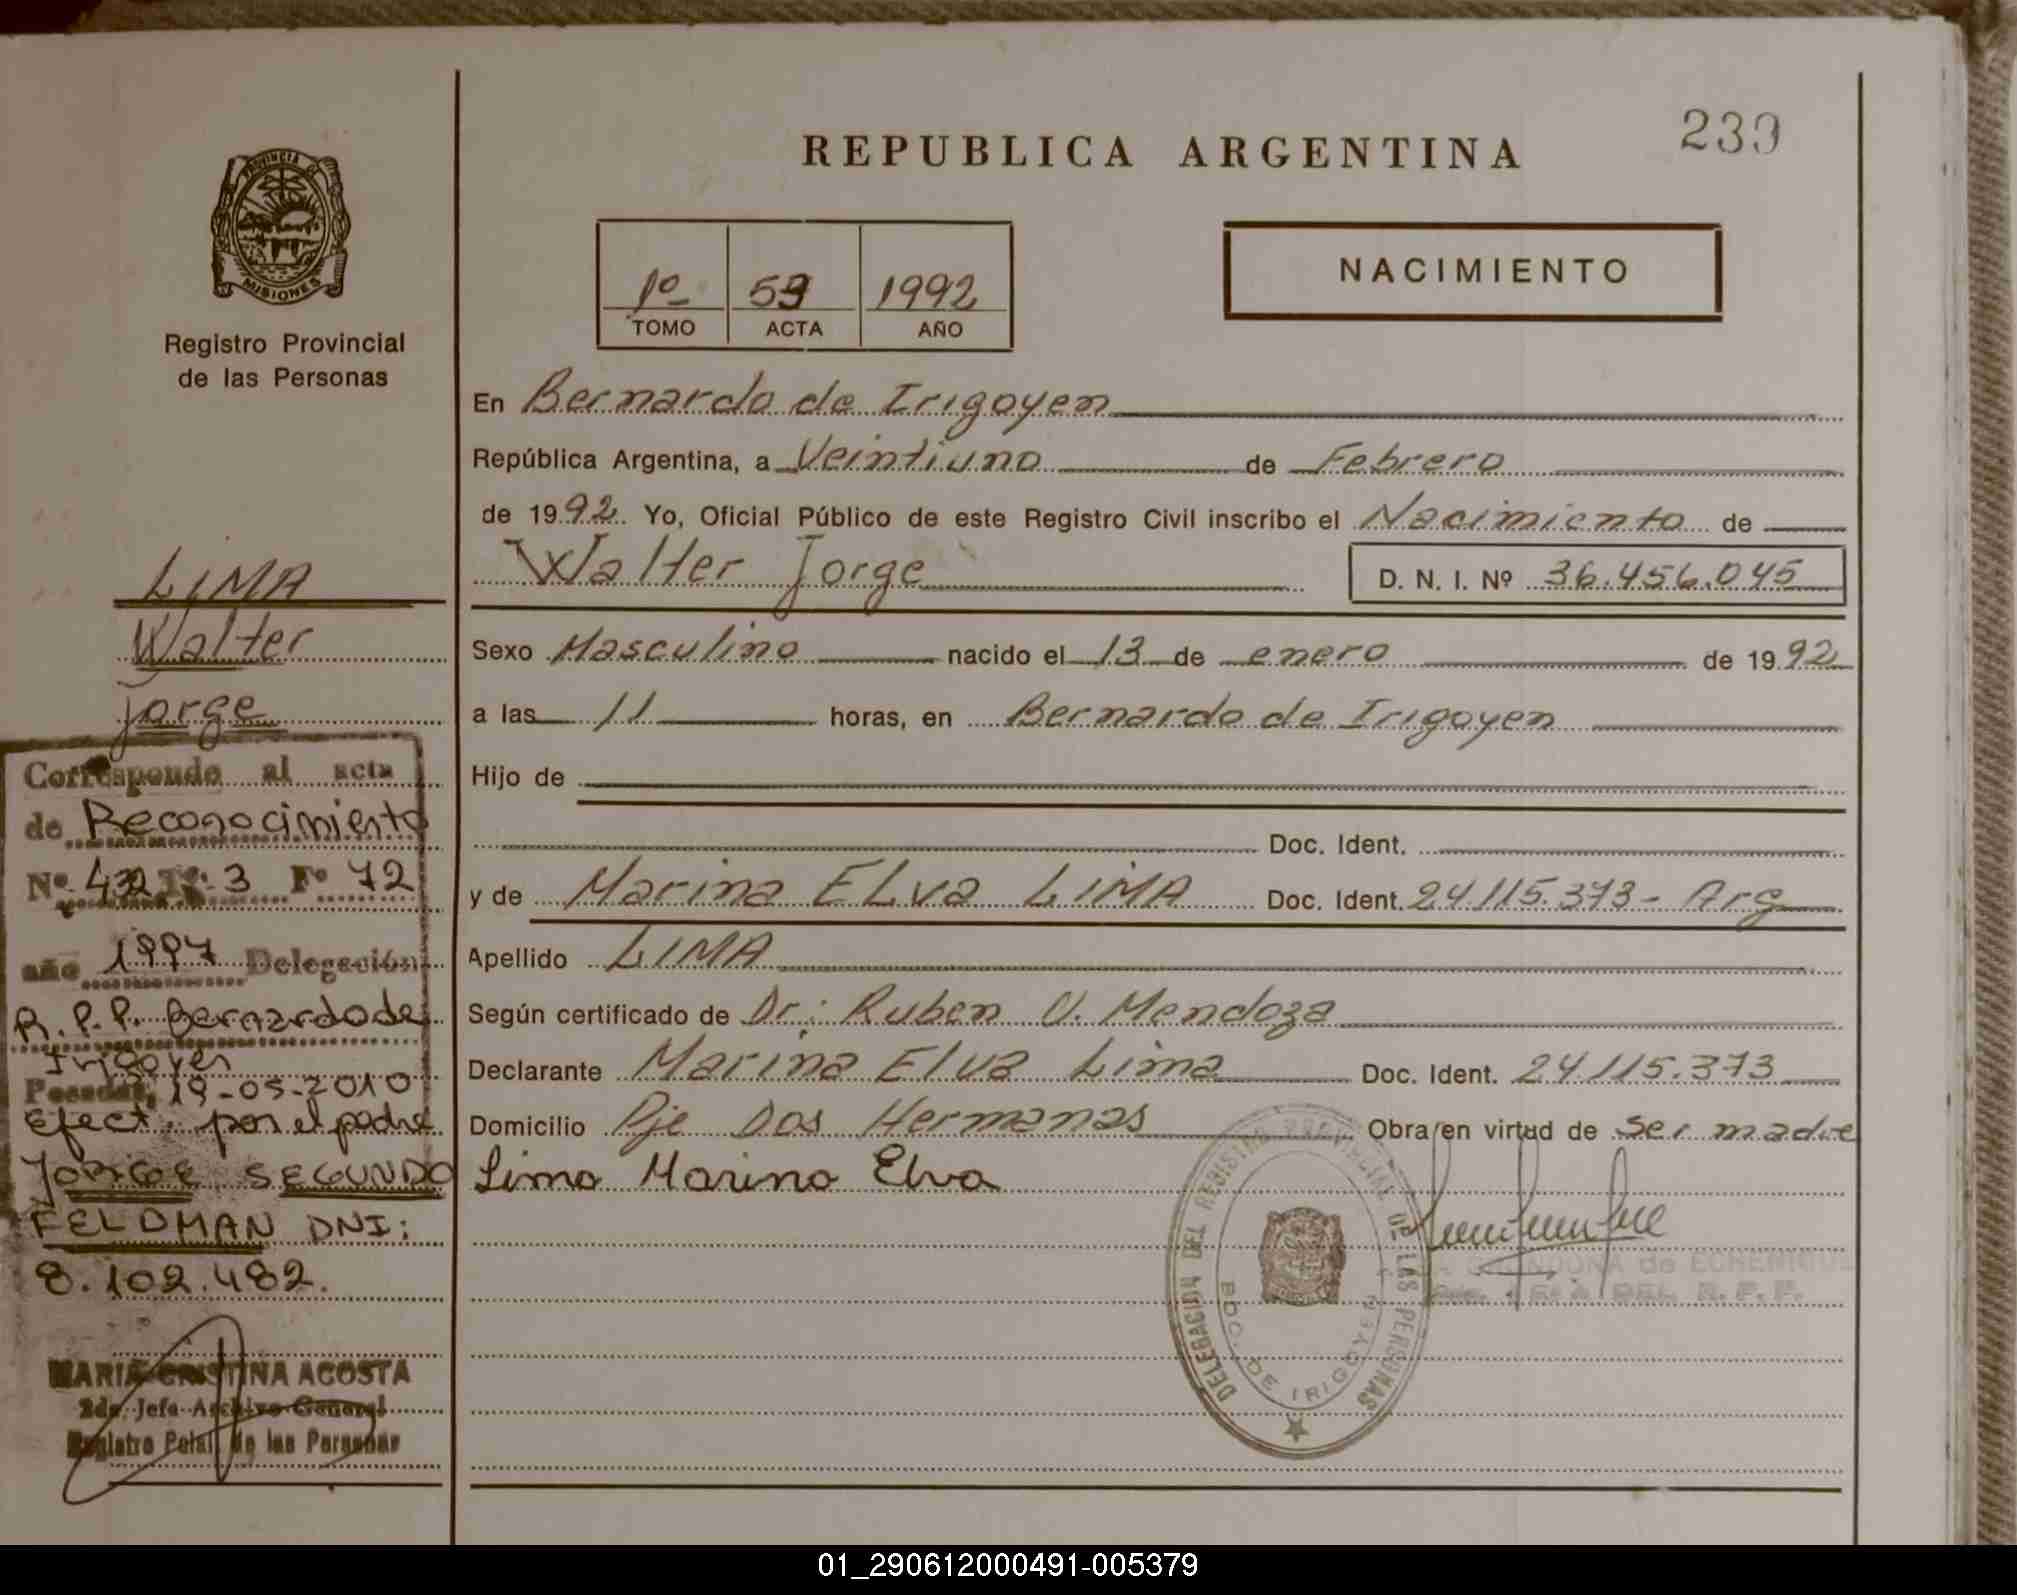 239
REPUBLICA ARGENTINA
PROVINCIA DE
MISIONES
Registro Provincial
de las Personas
1º 59 1992
TOMO ACTA AÑO
NACIMIENTO
En Bernardo de Irigoyen
República Argentina, a Veintiuno de Febrero
de 1992. Yo, Oficial Público de este Registro Civil inscribo el Nacimiento de
Walter Jorge D. N. I. Nº 36.456.045
Sexo Masculino nacido el 13 de enero de 1992
a las 11 horas, en Bernardo de Irigoyen
Hijo de
Doc. Ident.
y de Marina ELva LiMA Doc. Ident. 24.115.373- Arg
Apellido LIMA
Según certificado de Dr: Ruben U. Mendoza
Declarante Marina Elva Lima Doc. Ident. 24.115.373
Domicilio Pje Dos Hermanas Obra en virtud de ser madre
Lima Marina Elva
DELEGACION DEL REGISTRO PROVINCIAL DE LAS PERSONAS
BDO. DE IRIGOYEN
de ECHENIQUE
DEL R. P. P.
LiMA
Walter
jorge
Corresponde al acta
de Reconocimiento
Nº 432 Tº 3 Fº 72
año 1997 Delegación
R.P.P. Bernardo de
Irigoyen
Posadas, 19-05-2010
Efect. por el padre
JORGE SEGUNDO
FELDMAN DNI:
8.102.482.
MARIA CRISTINA ACOSTA
2da. Jefa Archivo General
Registro Pcial. de las Personas
01_290612000491-005379